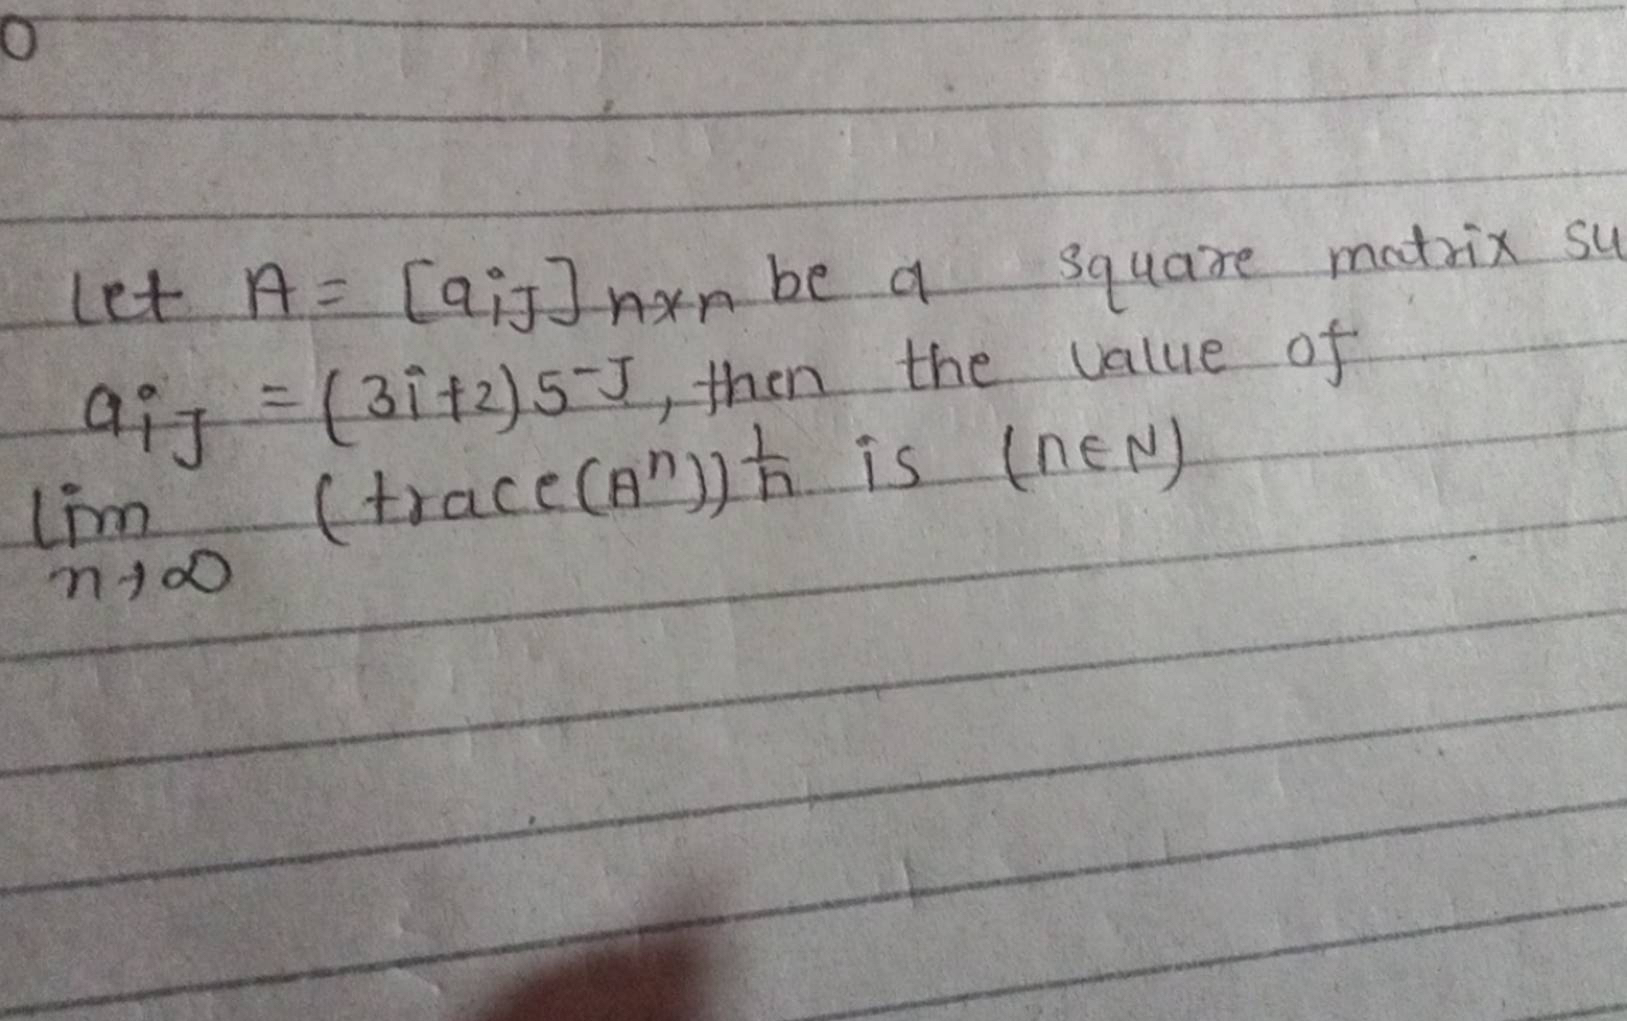 Let A = [aij]n×n be a square matrix su
aij = (3i+2)5^-J, then the value of
lim (trace(A^n))^1/n is (n∈N)
n→∞